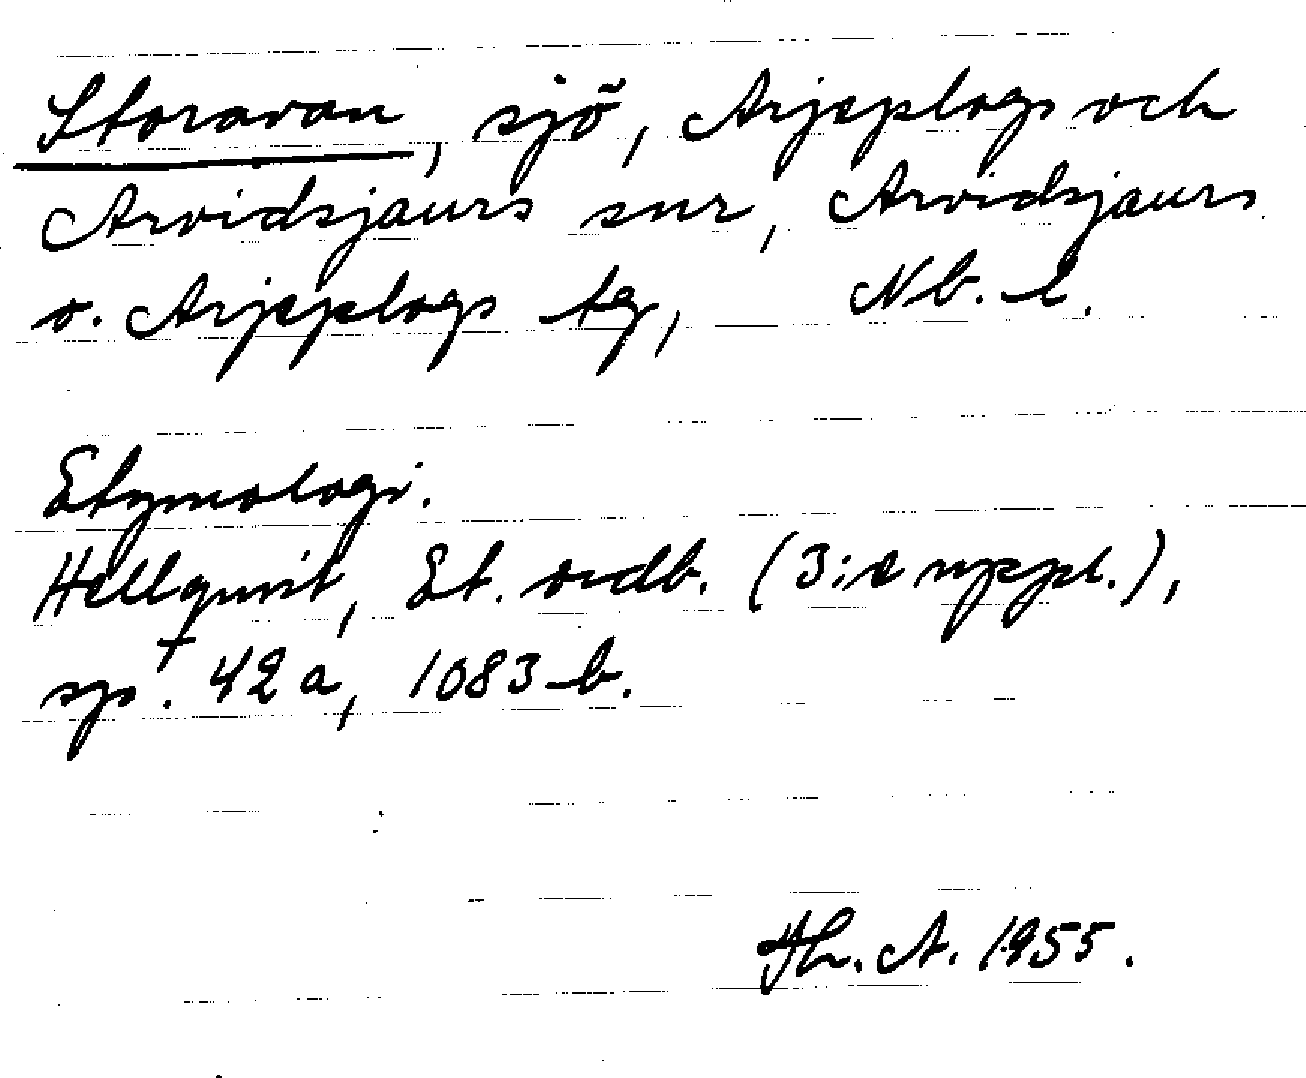 Storavan, sjö, Arjeplogs och
Arvidsjaurs snr, Arvidsjaurs
o. Arjeplogs tg, Nb. l.
Etymologi.
Hellquist, Et. ordb. (3:e uppl.),
sp. 42 a, 1083 b.
Th. A. 1955.